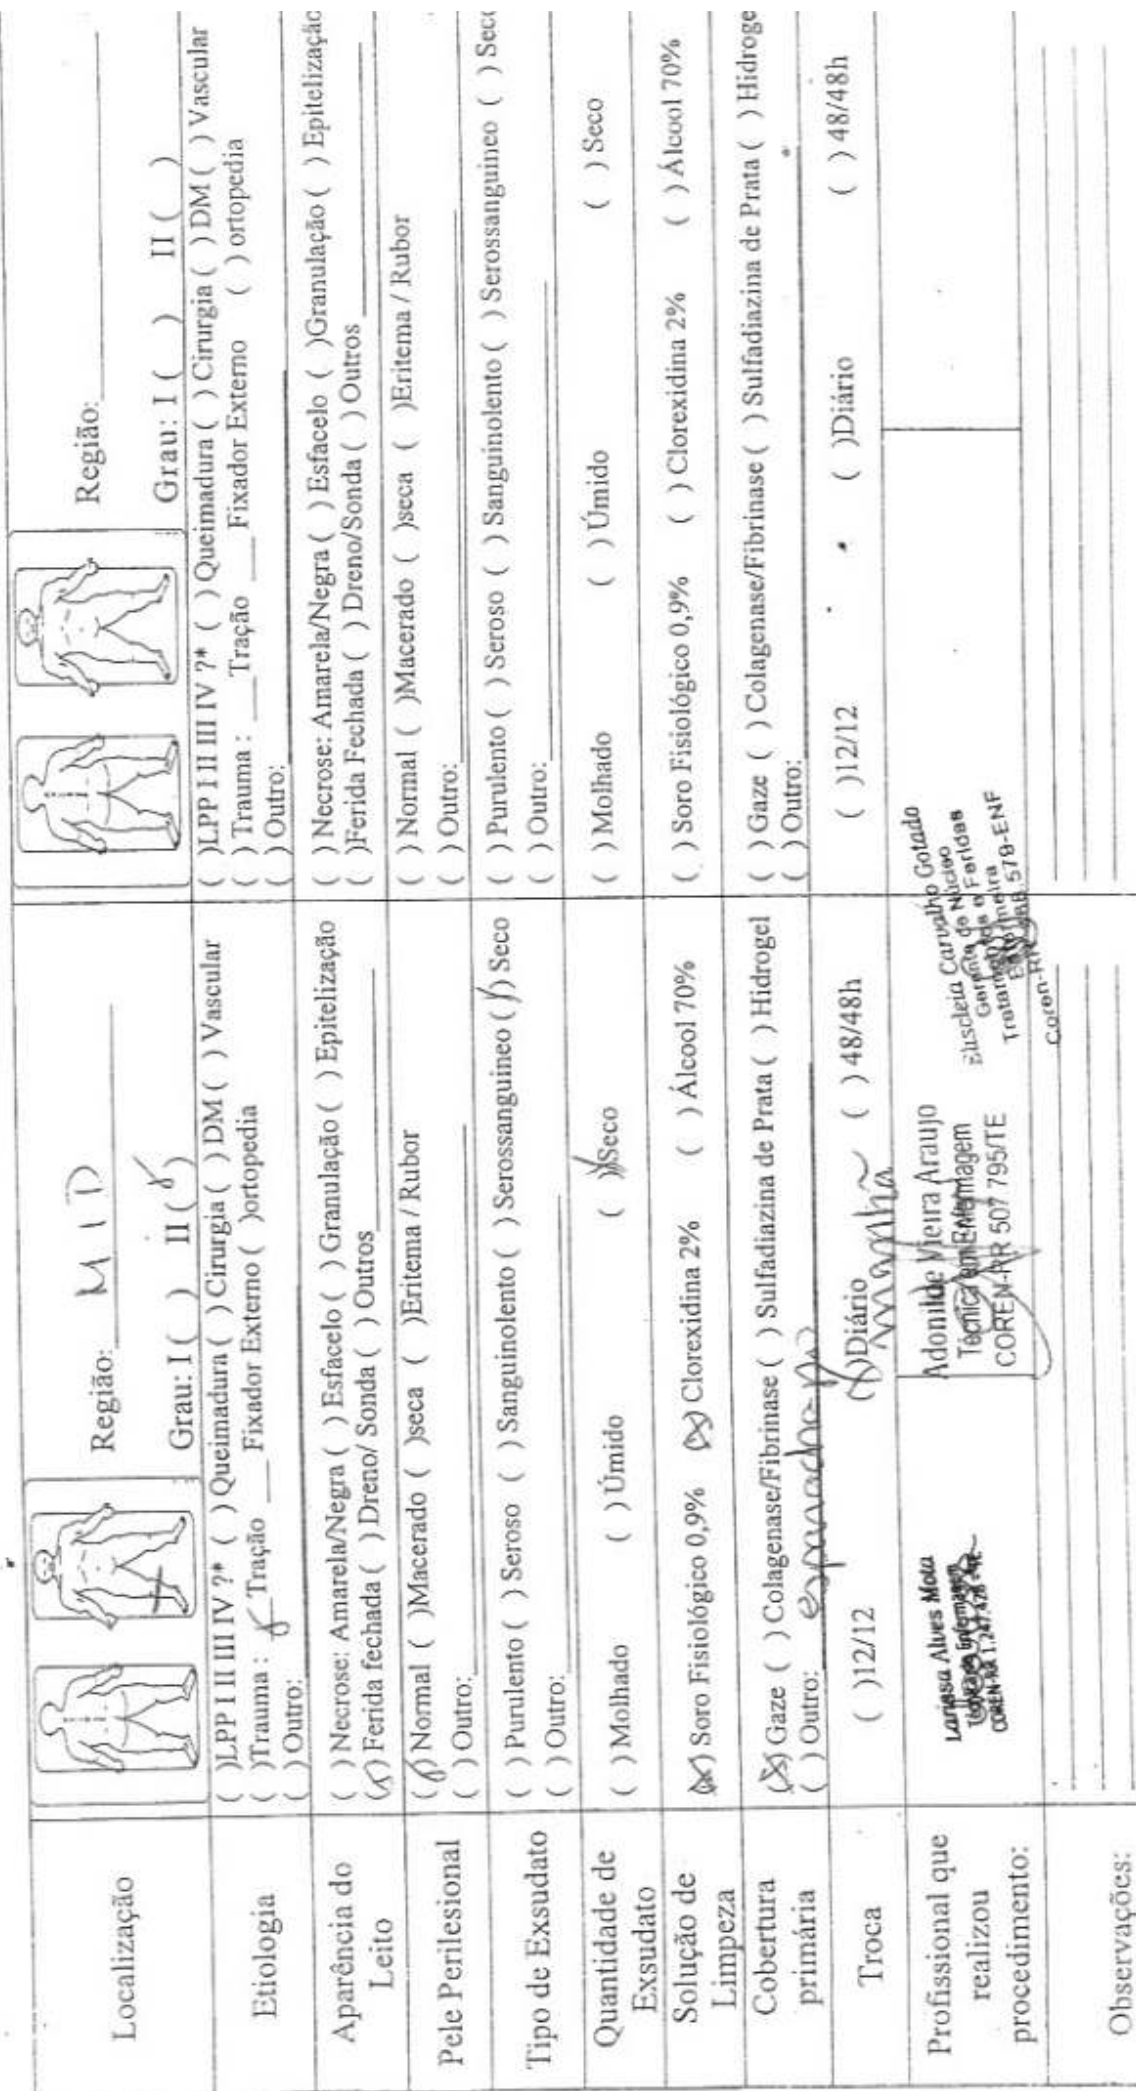 Localização
Região: MID
Grau: I ( ) II (X)
Região:
Grau: I ( ) II ( )
Etiologia
( )LPP I II III IV ?* ( ) Queimadura ( ) Cirurgia ( ) DM ( ) Vascular
( )Trauma : X Tração ___ Fixador Externo ( )ortopedia
( ) Outro:
( )LPP I II III IV ?* ( ) Queimadura ( ) Cirurgia ( ) DM ( ) Vascular
( ) Trauma : ___Tração ___ Fixador Externo ( ) ortopedia
( ) Outro:
Aparência do
Leito
( ) Necrose: Amarela/Negra ( ) Esfacelo ( ) Granulação ( ) Epitelização
(X) Ferida fechada ( ) Dreno/ Sonda ( ) Outros
( ) Necrose: Amarela/Negra ( ) Esfacelo ( )Granulação ( ) Epitelização
( )Ferida Fechada ( ) Dreno/Sonda ( ) Outros
Pele Perilesional
(X) Normal ( )Macerado ( )seca ( )Eritema / Rubor
( ) Outro:
( ) Normal ( )Macerado ( )seca ( )Eritema / Rubor
( ) Outro:
Tipo de Exsudato
( ) Purulento ( ) Seroso ( ) Sanguinolento ( ) Serossanguineo (X) Seco
( ) Outro:
( ) Purulento ( ) Seroso ( ) Sanguinolento ( ) Serossanguineo ( ) Seco
( ) Outro:
Quantidade de
Exsudato
( ) Molhado ( ) Úmido (X)Seco
( ) Molhado ( ) Úmido ( ) Seco
Solução de
Limpeza
(X) Soro Fisiológico 0,9% (X) Clorexidina 2% ( ) Álcool 70%
( ) Soro Fisiológico 0,9% ( ) Clorexidina 2% ( ) Álcool 70%
Cobertura
primária
(X) Gaze ( ) Colagenase/Fibrinase ( ) Sulfadiazina de Prata ( ) Hidrogel
( ) Outro: esparadrapo
( ) Gaze ( ) Colagenase/Fibrinase ( ) Sulfadiazina de Prata ( ) Hidroge
( ) Outro:
Troca
( )12/12 (X)Diário ( ) 48/48h
manhã
( )12/12 ( )Diário ( ) 48/48h
Profissional que
realizou
procedimento:
Larissa Alves Mota
Enfermagem
COREN-RR 1.247.428
Adonilde Vieira Araujo
Técnica em Enfermagem
COREN-RR 507 795/TE
Carvalho Gotado
Gerente do Núcleo
Tratamento e Feridas
Enfermeira
Coren-RR 578-ENF
Observações: